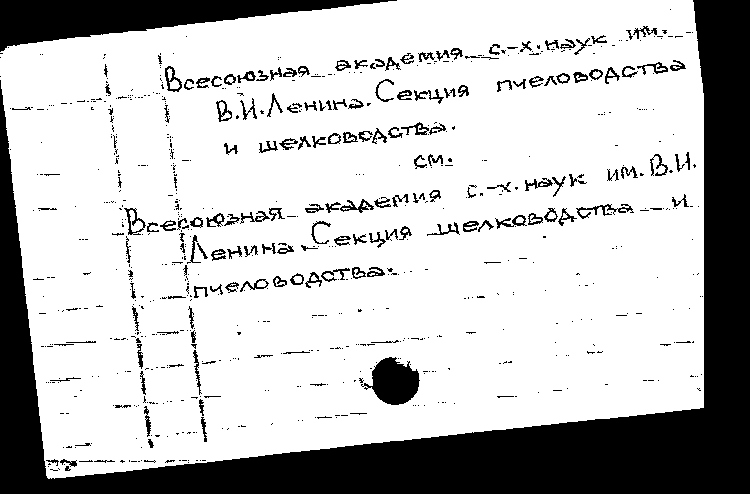 Всесоюзная академия с.-х. наук им.
В.И. Ленина. Секция пчеловодства
и шелководства.
см.
Всесоюзная академия с.-х. наук им. В.И.
Ленина. Секция шелководства и
пчеловодства.